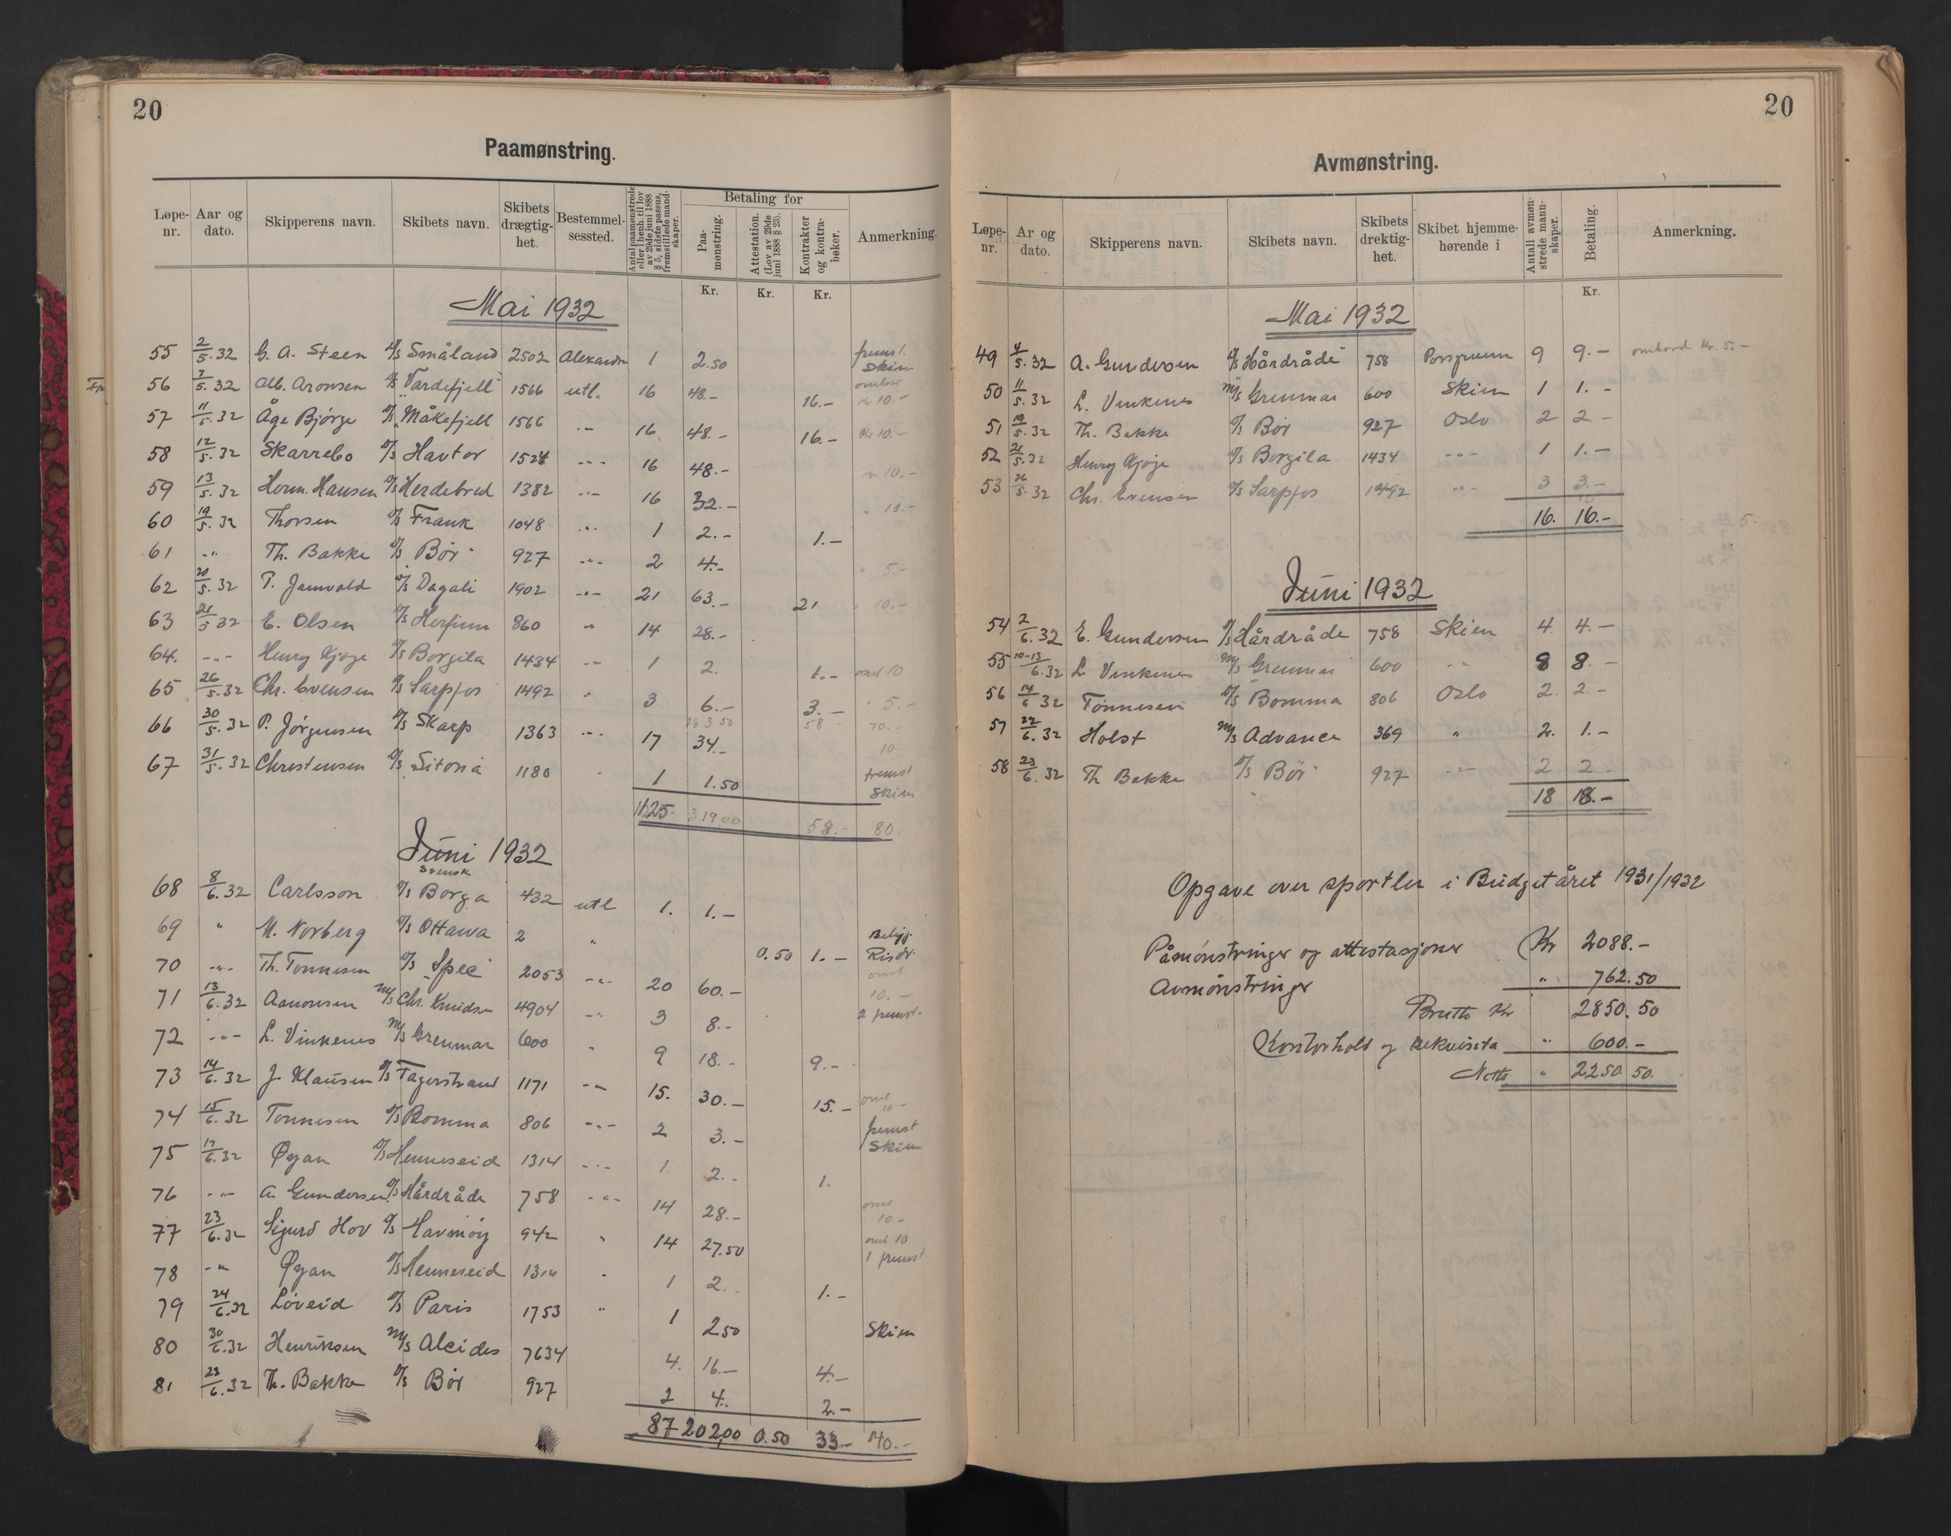 20
Paamønstring.
Løpe-nr. Aar og dato. Skipperens navn. Skibets navn. Skibets drægtig-het. Bestemmel-sessted. Antal paamønstrede eller i henh. til lov av 29de juni 1888 § 5, sidste passus, fremstillede mand-skaper. Betaling for Anmerkning.
Paa-mønstring. Attestation. (Lov av 29de juni 1888 § 23). Kontrakter og kontra-bøker.
Kr. Kr. Kr.
Mai 1932
55 2/5.32 G. A. Steen D/S Småland 2502 Alexandr 1 2.50 fremst. Skien
56 7/5.32 Alb. Aronsen D/S "Vardefjell" 1566 utl. 16 48.- 16.- ombor Kr 10.-
57 11/5.32 Åge Bjørge D/S "Måkefjell 1566 -"- 16 48.- 16.- Kr 10.-
58 12/5.32 Skarrebo D/S Havtor 1524 -"- 16 48.- Kr 10.-
59 13/5.32 Herm. Hansen D/S Herdebred 1382 -"- 16 32.- " 10.-
60 19/5.32 Thorsen D/S Frank 1048 -"- 1 2.- 1.-
61 -"- Th. Bakke D/S Bør 927 -"- 2 4.- " 5.-
62 20/5.32 P. Jamvold D/S Dagali 1902 -"- 21 63.- 21 " 10.-
63 21/5 32 E. Olsen D/S Herfinn 860 " 14 28.-
64. -"- Henry Gjøge D/S Borgila 1434 -"- 1 2. 1.- omb 10
65 26/5.32 Chr. Evensen D/S Sarpfos 1492 " 3 6.- 3.- " 5.-
28 3 50 58 - 70.-
66 30/5.32 P. Jørgensen D/S Skarp 1363 -"- 17 34.- 10
67 31/5.32 Christensen D/S Sitona 1180 " 1 1.50 fremst Skien
125. 319,00 58.- 80.
Juni 1932
svensk
68 8/6.32 Carlsson D/S Borga 432 utl 1. 1.-
69 " M. Norberg D/S Ottawa 2 " 0.50 1.- Risør
70 -"- Th. Tønnesen D/S "Spec" 2053 -"- 20 60.- omb 10.-
71 13/6.32 Aanonsen M/S Chr. Knudsen 4904 -"- 3 8.- 2 fremst.
72 -"- L. Vinkenes M/S Grenmar 600 " 9 18.- 9.-
73 14/6.32 J. Klausen D/S Fagerstrand 1171 -"- 15. 30.- 15.- omb 10-
74 15/6.32 Tønnesen D/S Bomma 806 -"- 2 3.- fremst Skien
75 17/6.32 Øyan D/S Henneseid 1314 -"- 1. 2.- 1.
76 -"- A. Gundersen D/S Hårdråde 758 -"- 14 28.- omb 10-
77 23/6.32 Sigurd Hov D/S Havmøy 942 " 14 27.50 omb 10 1 fremst.
78 -"- Øyan D/S Henneseid 1314 " 1 2.- 1.-
79 24/6.32 Løveid D/S Paris 1753 " 1 2.50 Skien
80 30/6.32 Henriksen M/S Alcides 7634 4. 16.- 4.-
81 23/6.32 Th. Bakke D/S Bør 927 2 4. 2.-
87 202,00 0.50 33.- 40.-
20
Avmønstring.
Løpe-nr. Ar og dato. Skipperens navn. Skibets navn. Skibets drektig-het. Skibet hjemme-hørende i Antall avmøn-strede mann-skaper. Betaling. Anmerkning.
Kr.
Mai 1932
49 4/5.32 A. Gundersen D/S Hårdråde 758 Porsgrunn 9 9.- ombord Kr. 5.-
50 11/5.32 L. Vinkenes M/S Grenmar 600 Skien 1 1.-
51 19/5.32 Th. Bakke D/S Bør 927 Oslo 2 2.-
52 21/5.32 Henry Gjøge D/S Borgila 1434 -"- 1 1.-
53 26/5.32 Chr. Evensen D/S Sarpfos 1492 -"- 3 3.-
16. 16.- 5.-
Juni 1932
54 2/6.32 E. Gundersen D/S Hårdråde 758 Skien 4. 4.-
55 10-13/6.32 L. Vinkenes M/S Grenmar 600 -"- 8 8.-
56 14/6 32 Tønnesen D/S Bomma 806 Oslo 2. 2.-
57 22/6.32 Holst M/S Advance 369 " 2. 1.-
58 23/6.32 Th Bakke D/S Bør 927 -"- 2 2.-
18 18.-
Opgave over sportler i Budgetåret 1931/1932
Påmønstringer og attestasjoner Kr 2088.-
Avmønstringer " 762.50
Brutto Kr 2850.50
Kontorhold og rekvisita " 600.-
Netto " 2250.50.